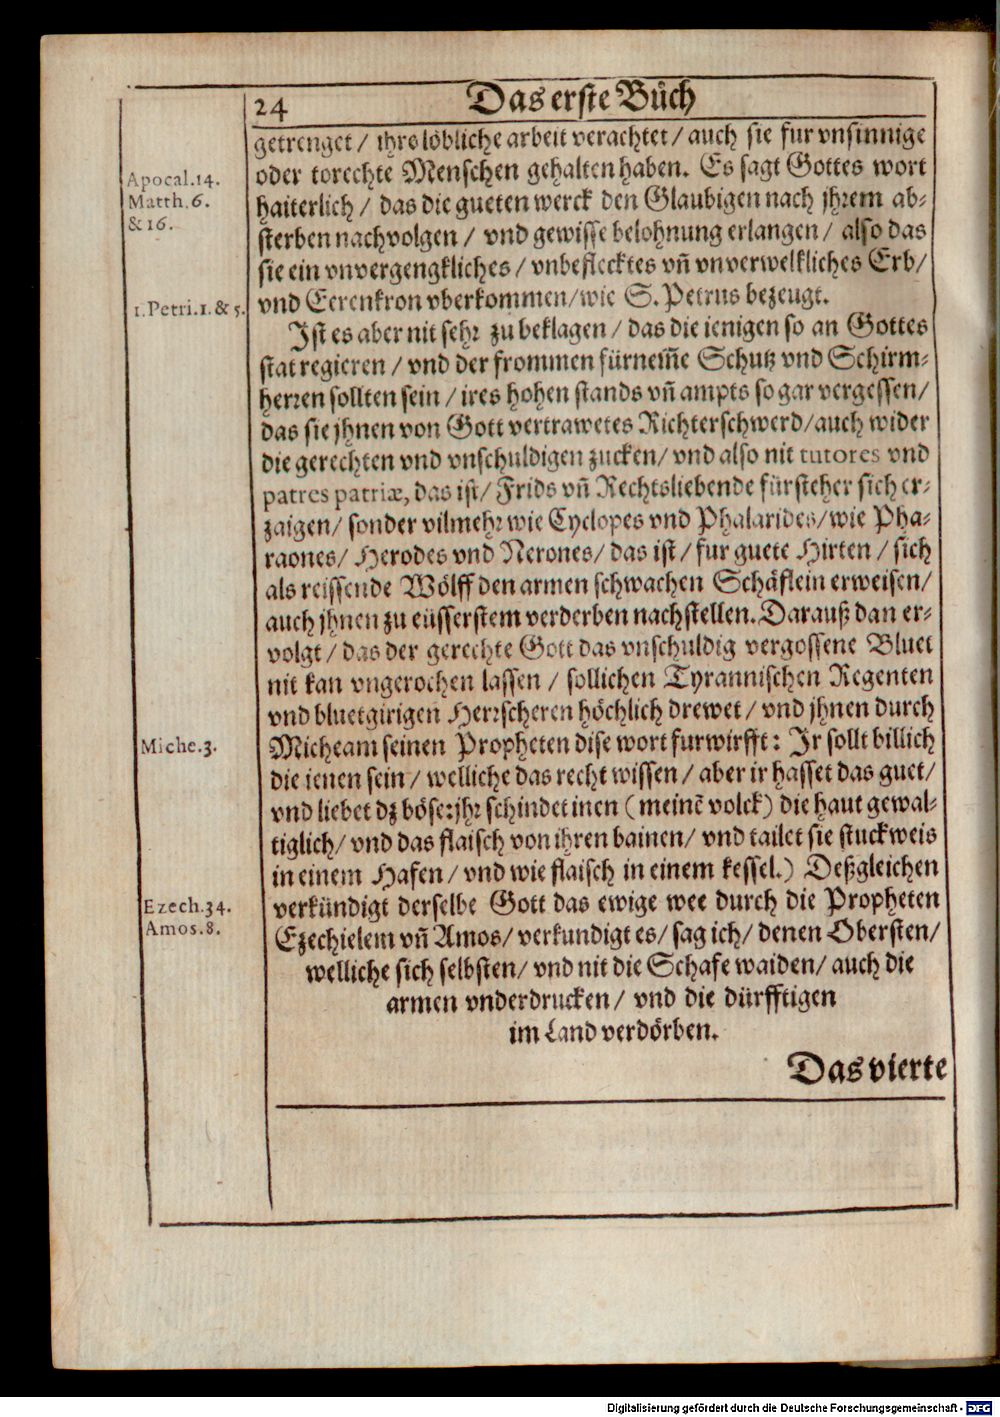 24 Das erste Buch
getrenget / ihrs löbliche arbeit verachtet / auch sie fur vnsinnige
oder torechte Menschen gehalten haben. Es sagt Gottes wort
Apocal.14.
Matth.6.
& 16.
haiterlich / das die gueten werck den Glaubigen nach jhrem ab-
sterben nachvolgen / vnd gewisse belohnung erlangen / also das
sie ein vnvergengkliches / vnbeflecktes vñ vnverwelkliches Erb /
1.Petri.1.& 5.
vnd Eerenkron vberkommen / wie S. Petrus bezeugt.
Ist es aber nit sehr zu beklagen / das die ienigen so an Gottes
stat regieren / vnd der frommen fürneme Schutz vnd Schirm-
herren sollten sein / ires hohen stands vñ ampts so gar vergessen /
das sie jhnen von Gott vertrawetes Richterschwerd / auch wider
die gerechten vnd vnschuldigen zucken / vnd also nit tutores vnd
patres patriæ, das ist / Frids vñ Rechtsliebende fürsteher sich er-
zaigen / sonder vilmehr wie Cyclopes vnd Phalarides / wie Pha-
raones / Herodes vnd Nerones / das ist / fur guete Hirten / sich
als reissende Wölff den armen schwachen Schäflein erweisen /
auch jhnen zu eüsserstem verderben nachstellen. Darauß dan er-
volgt / das der gerechte Gott das vnschuldig vergossene Bluet
nit kan vngerochen lassen / sollichen Tyrannischen Regenten
vnd bluetgirigen Herrscheren höchlich drewet / vnd jhnen durch
Miche.3.
Micheam seinen Propheten dise wort furwirfft: Ir sollt billich
die ienen sein / welliche das recht wissen / aber ir hasset das guet /
vnd liebet dz böse: jhr schindet inen ( meinē volck ) die haut gewal-
tiglich / vnd das flaisch von ihren bainen / vnd tailet sie stuckweis
in einem Hafen / vnd wie flaisch in einem kessel.) Deßgleichen
Ezech.34.
Amos.8.
verkündigt derselbe Gott das ewige wee durch die Propheten
Ezechielem vñ Amos / verkundigt es / sag ich / denen Obersten /
welliche sich selbsten / vnd nit die Schafe waiden / auch die
armen vnderdrucken / vnd die dürfftigen
im Land verdörben.
Das vierte
Digitalisierung gefördert durch die Deutsche Forschungsgemeinschaft - DFG